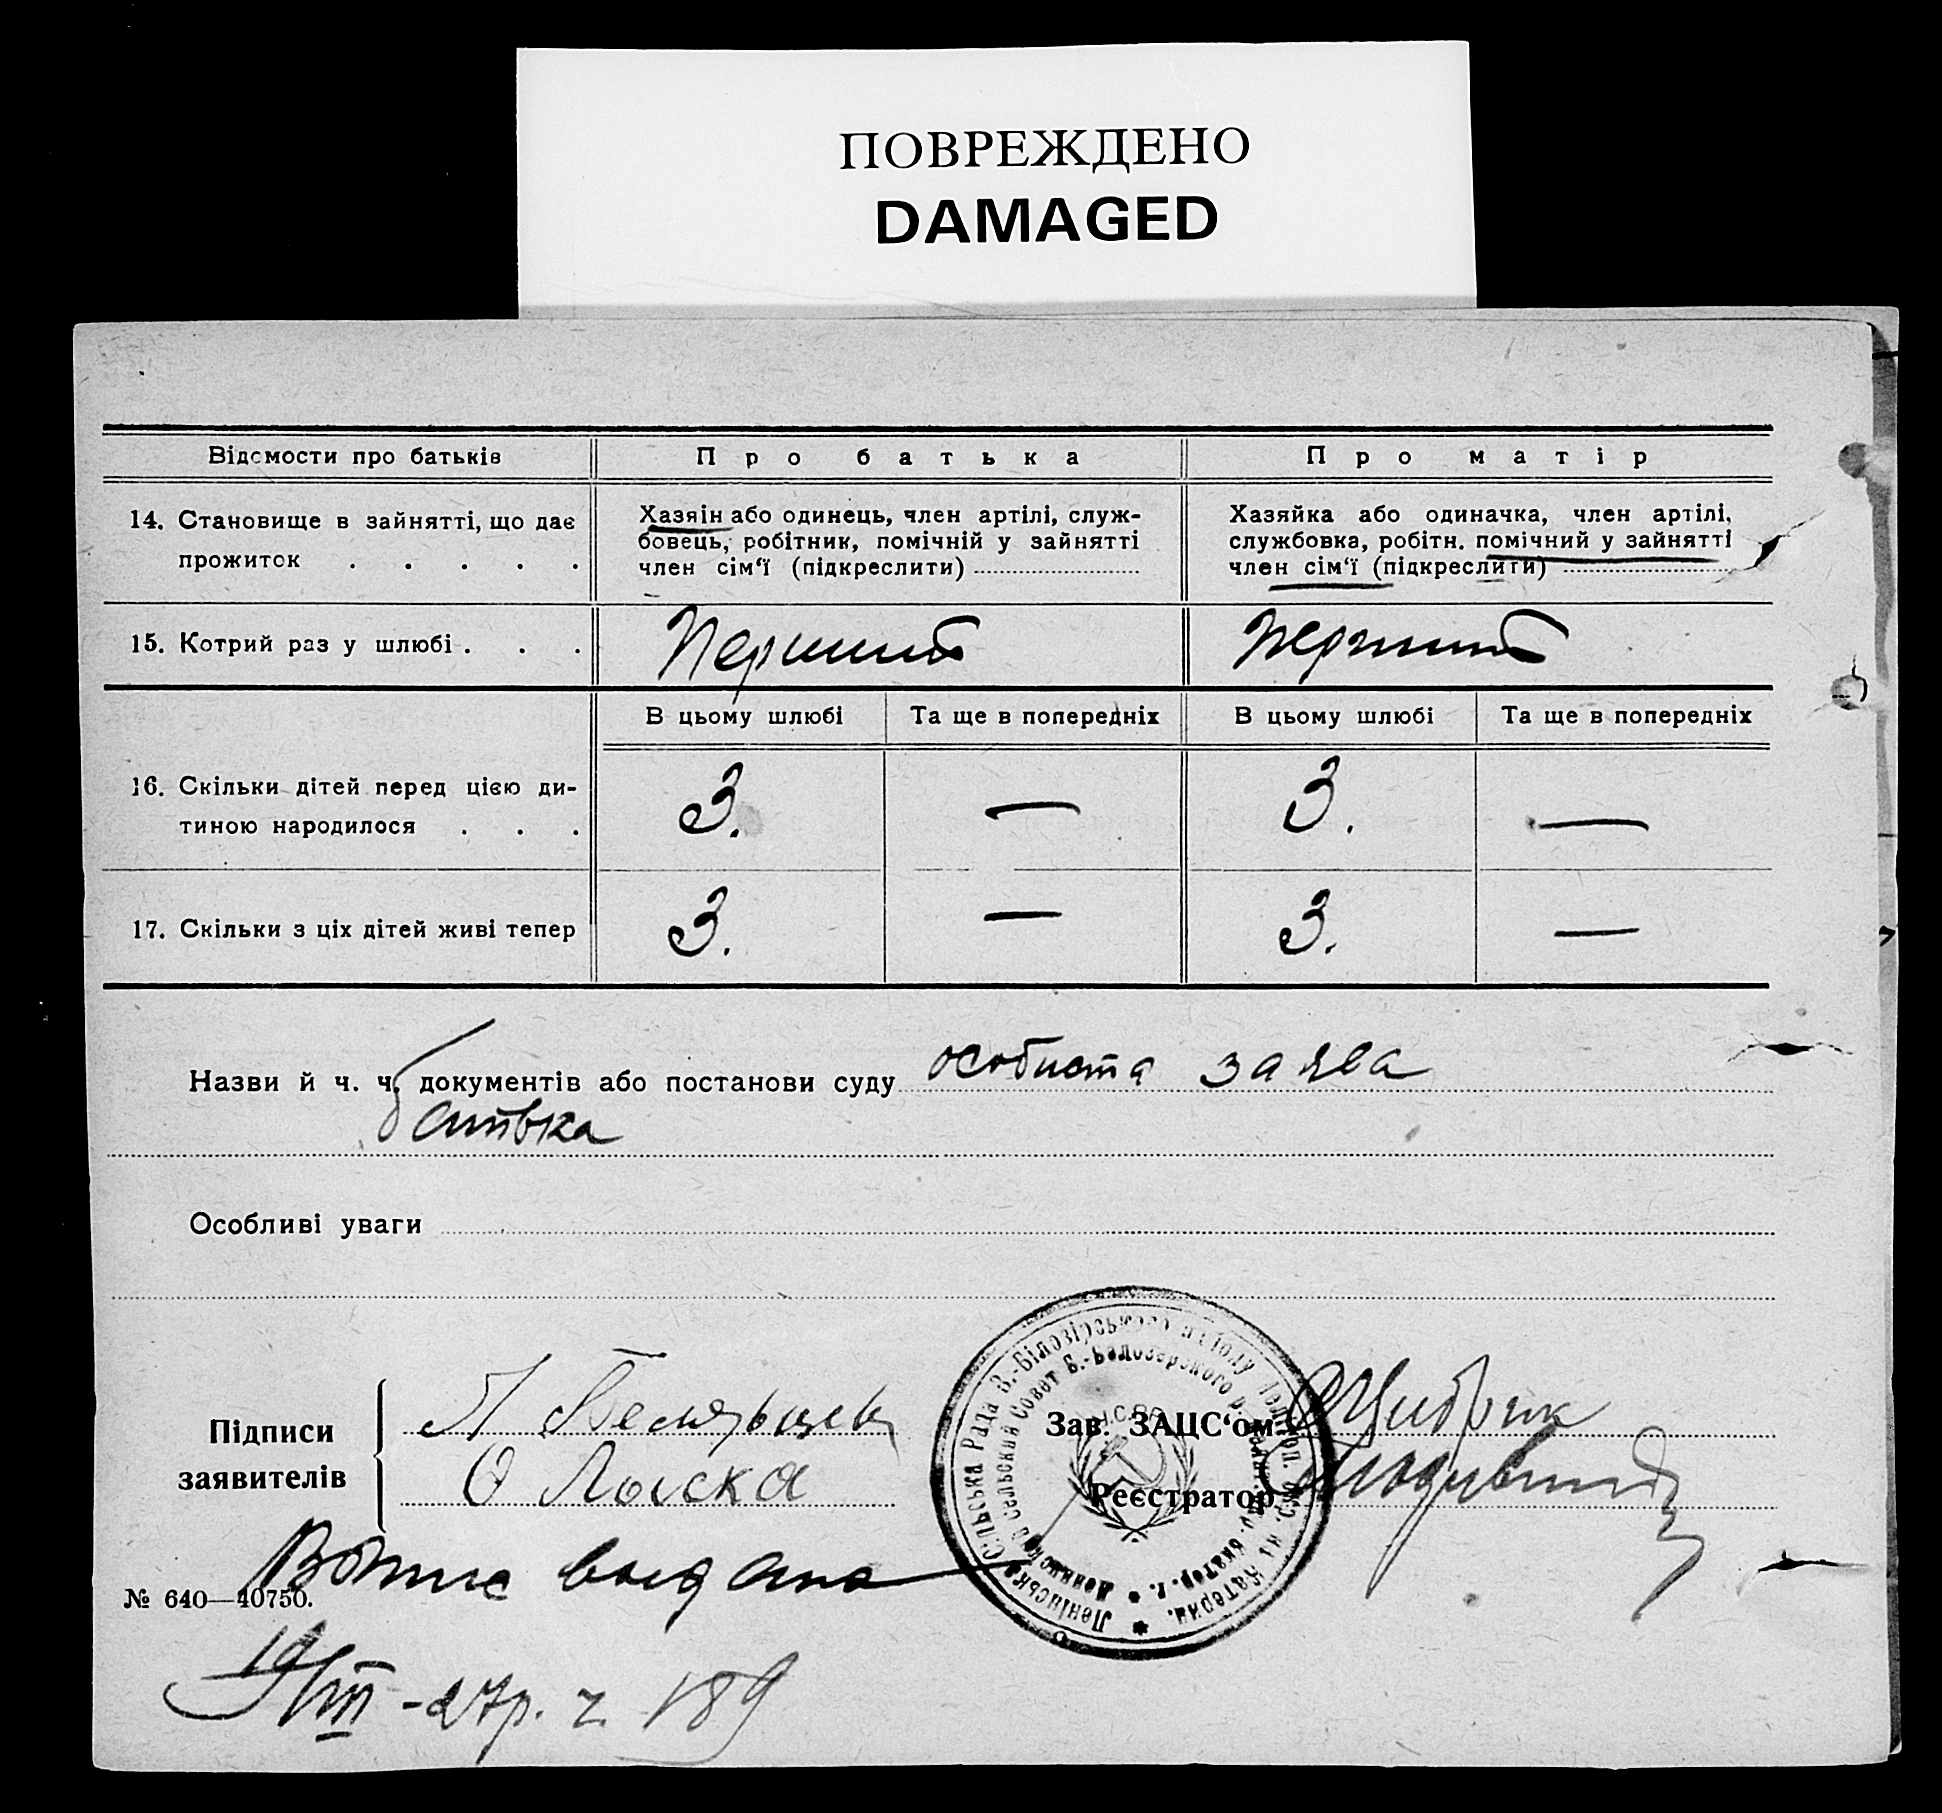 ПОВРЕЖДЕНО
DAMAGED
Відомости про батьків
Про батька
Про матір
14. Становище в зайнятті, що дає
прожиток . . . . .
Хазяін або одинець, член артілі, служ-
бовець, робітник, помічній у зайнятті
член сім'ї (підкреслити)
Хазяйка або одиначка, член артілі,
службовка, робітн. помічний у зайнятті
член сім'ї (підкреслити)
15. Котрий раз у шлюбі . . .
Перший
перший
В цьому шлюбі
Та ще в попередніх
В цьому шлюбі
Та ще в попередніх
16. Скільки дітей перед цією ди-
тиною народилося . . .
3.
—
3.
—
17. Скільки з ціх дітей живі тепер
3.
—
3.
—
Назви й ч. ч. документів або постанови суду особиста заява
батька
Особливі уваги
Підписи
заявителів
Зав. ЗАЦС'ом
Реєстратор
Ленінська Сільська Рада В.-Білозірського району
Сельский Совет В.-Белозерского
№ 640—40750.
19/VIII-27р. ч. 189